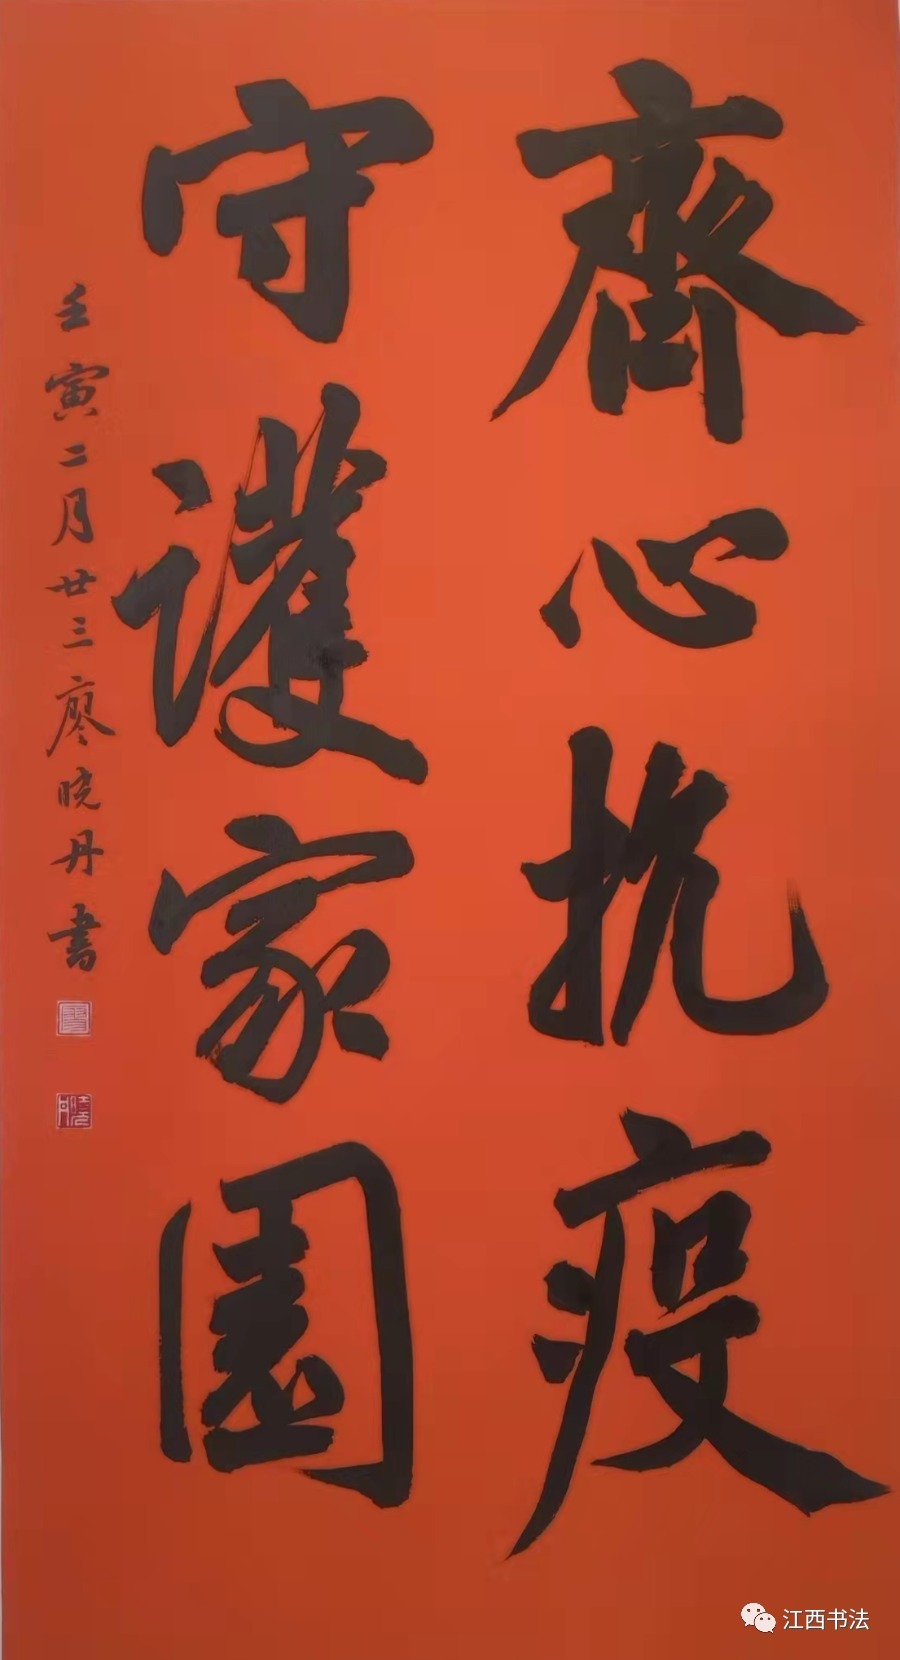 齊心抗疫
守護家園
壬寅二月廿三廖晓丹書
江西书法